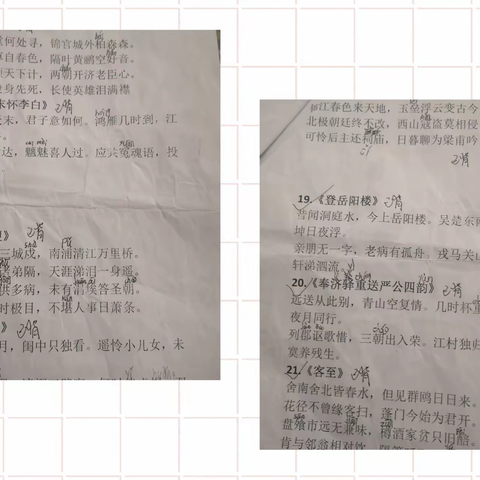 何处寻，锦官城外柏森森。
自春色，隔叶黄鹂空好音。
天下计，两朝开济老臣心。
身先死，长使英雄泪满襟
末怀李白》 已背
天末，君子意如何。鸿雁几时到，江
达，魑魅喜人过。应共冤魂语，投
已背
三城戍，南浦清江万里桥。
弟隔，天涯涕泪一身遥。
供多病，未有涓埃答圣朝。
时极目，不堪人事日萧条。
》 已背
月，闺中只独看。遥怜小儿女，未
江春色来天地，玉垒浮云变古今
北极朝廷终不改，西山寇盗莫相侵
可怜后主还祠庙，日暮聊为梁甫吟
已背
19.《登岳阳楼》 已背
昔闻洞庭水，今上岳阳楼。吴楚东南
坤日夜浮。
亲朋无一字，老病有孤舟。戎马关山
轩涕泗流。
20.《奉济驿重送严公四韵》 已背
远送从此别，青山空复情。几时杯重
夜月同行。
列郡讴歌惜，三朝出入荣。江村独归
寞养残生。
21.《客至》 已背
舍南舍北皆春水，但见群鸥日日来。
花径不曾缘客扫，蓬门今始为君开。
盘飧市远无兼味，樽酒家贫只旧醅。
肯与邻翁相对饮